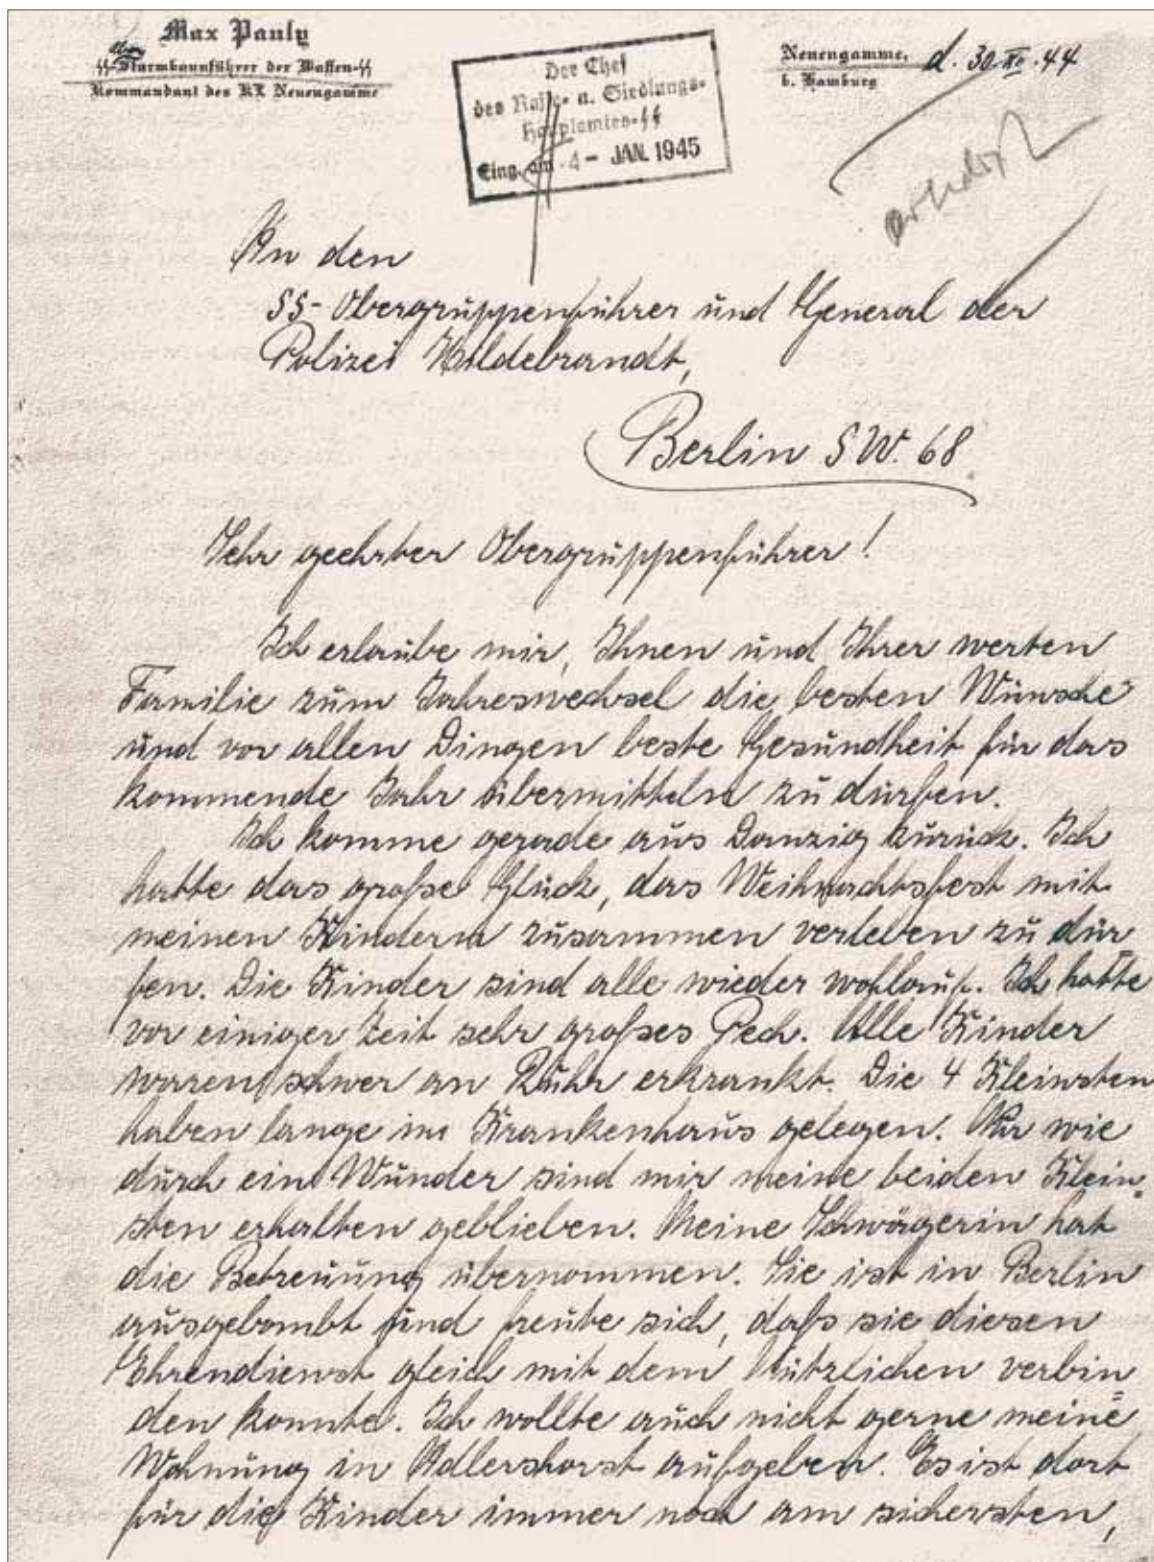 Max Pauly
SS-Sturmbannführer der Waffen-SS
Kommandant des KL Neuengamme
Neuengamme, d. 30.XII.44
b. Hamburg
Der Chef
des Rasse- u. Siedlungs-
Hauptamtes-SS
Eing. am -4- JAN. 1945
An den
SS-Obergruppenführer und General der
Polizei Hildebrandt,
Berlin SW. 68
Sehr geehrter Obergruppenführer!
Ich erlaube mir, Ihnen und Ihrer werten
Familie zum Jahreswechsel die besten Wünsche
und vor allen Dingen beste Gesundheit für das
kommende Jahr übermitteln zu dürfen.
Ich komme gerade aus Danzig zurück. Ich
hatte das große Glück, das Weihnachtsfest mit
meinen Kindern zusammen verleben zu dür
fen. Die Kinder sind alle wieder wohlauf. Ich hatte
vor einiger Zeit sehr großes Pech. Alle Kinder
waren schwer an Ruhr erkrankt. Die 4 Kleinsten
haben lange im Krankenhaus gelegen. Nur wie
durch ein Wunder sind mir meine beiden Klein=
sten erhalten geblieben. Meine Schwägerin hat
die Betreuung übernommen. Sie ist in Berlin
ausgebombt und freute sich, daß sie diesen
Ehrendienst gleich mit dem Nützlichen verbin=
den konnte. Ich wollte auch nicht gerne meine
Wohnung in Adlershorst aufgeben. Es ist dort
für die Kinder immer noch am sichersten,